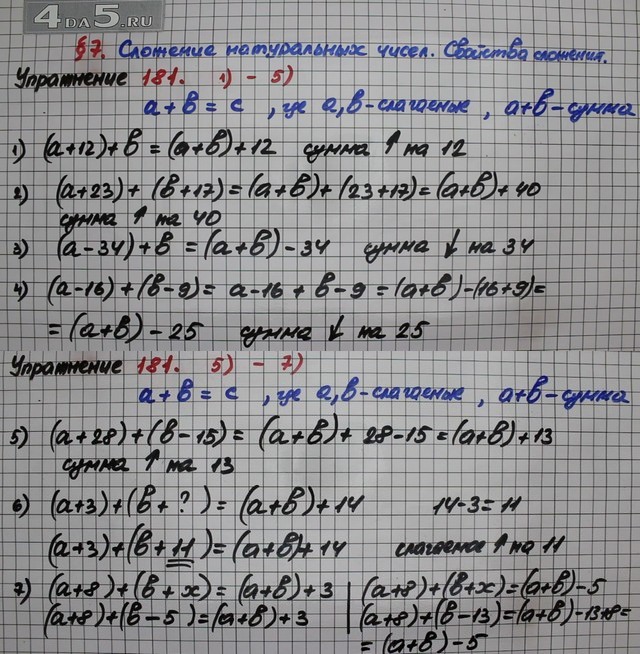 4DA5.RU
§7. Сложение натуральных чисел. Свойства сложения.
Упражнение 181. 1) - 5)
a + b = c , где a, b - слагаемые , a+b - сумма
1) (a+12) + b = (a+b) + 12 сумма ↑ на 12
2) (a+23) + (b+17) = (a+b) + (23+17) = (a+b) + 40
сумма ↑ на 40
3) (a-34) + b = (a+b) - 34 сумма ↓ на 34
4) (a-16) + (b-9) = a-16 + b-9 = (a+b) - (16+9) =
= (a+b) - 25 сумма ↓ на 25
Упражнение 181. 5) - 7)
a + b = c , где a, b - слагаемые , a+b - сумма
5) (a+28) + (b-15) = (a+b) + 28-15 = (a+b) + 13
сумма ↑ на 13
6) (a+3) + (b+ ? ) = (a+b) + 14 14-3 = 11
(a+3) + (b+11) = (a+b) + 14 слагаемое ↑ на 11
7) (a+8) + (b+x) = (a+b) + 3 | (a+8) + (b+x) = (a+b) - 5
(a+8) + (b-5) = (a+b) + 3 | (a+8) + (b-13) = (a+b) - 13+8 =
= (a+b) - 5